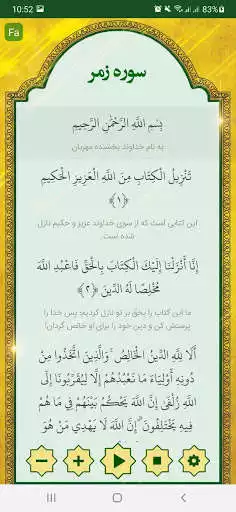 10:52
83%
Fa
سوره زمر
بِسْمِ اللَّهِ الرَّحْمَٰنِ الرَّحِيمِ
به نام خداوند بخشنده مهربان
تَنْزِيلُ الْكِتَابِ مِنَ اللَّهِ الْعَزِيزِ الْحَكِيمِ
﴿١﴾
این کتابی است که از سوی خداوند عزیز و حکیم نازل
شده است.
إِنَّا أَنْزَلْنَا إِلَيْكَ الْكِتَابَ بِالْحَقِّ فَاعْبُدِ اللَّهَ
مُخْلِصًا لَهُ الدِّينَ ﴿٢﴾
ما این کتاب را بحق بر تو نازل کردیم؛ پس خدا را
پرستش کن و دین خود را برای او خالص گردان!
أَلَا لِلَّهِ الدِّينُ الْخَالِصُ ۚ وَالَّذِينَ اتَّخَذُوا مِنْ
دُونِهِ أَوْلِيَاءَ مَا نَعْبُدُهُمْ إِلَّا لِيُقَرِّبُونَا إِلَى
اللَّهِ زُلْفَىٰ إِنَّ اللَّهَ يَحْكُمُ بَيْنَهُمْ فِي مَا هُمْ
فِيهِ يَخْتَلِفُونَ ۗ إِنَّ اللَّهَ لَا يَهْدِي مَنْ هُوَ